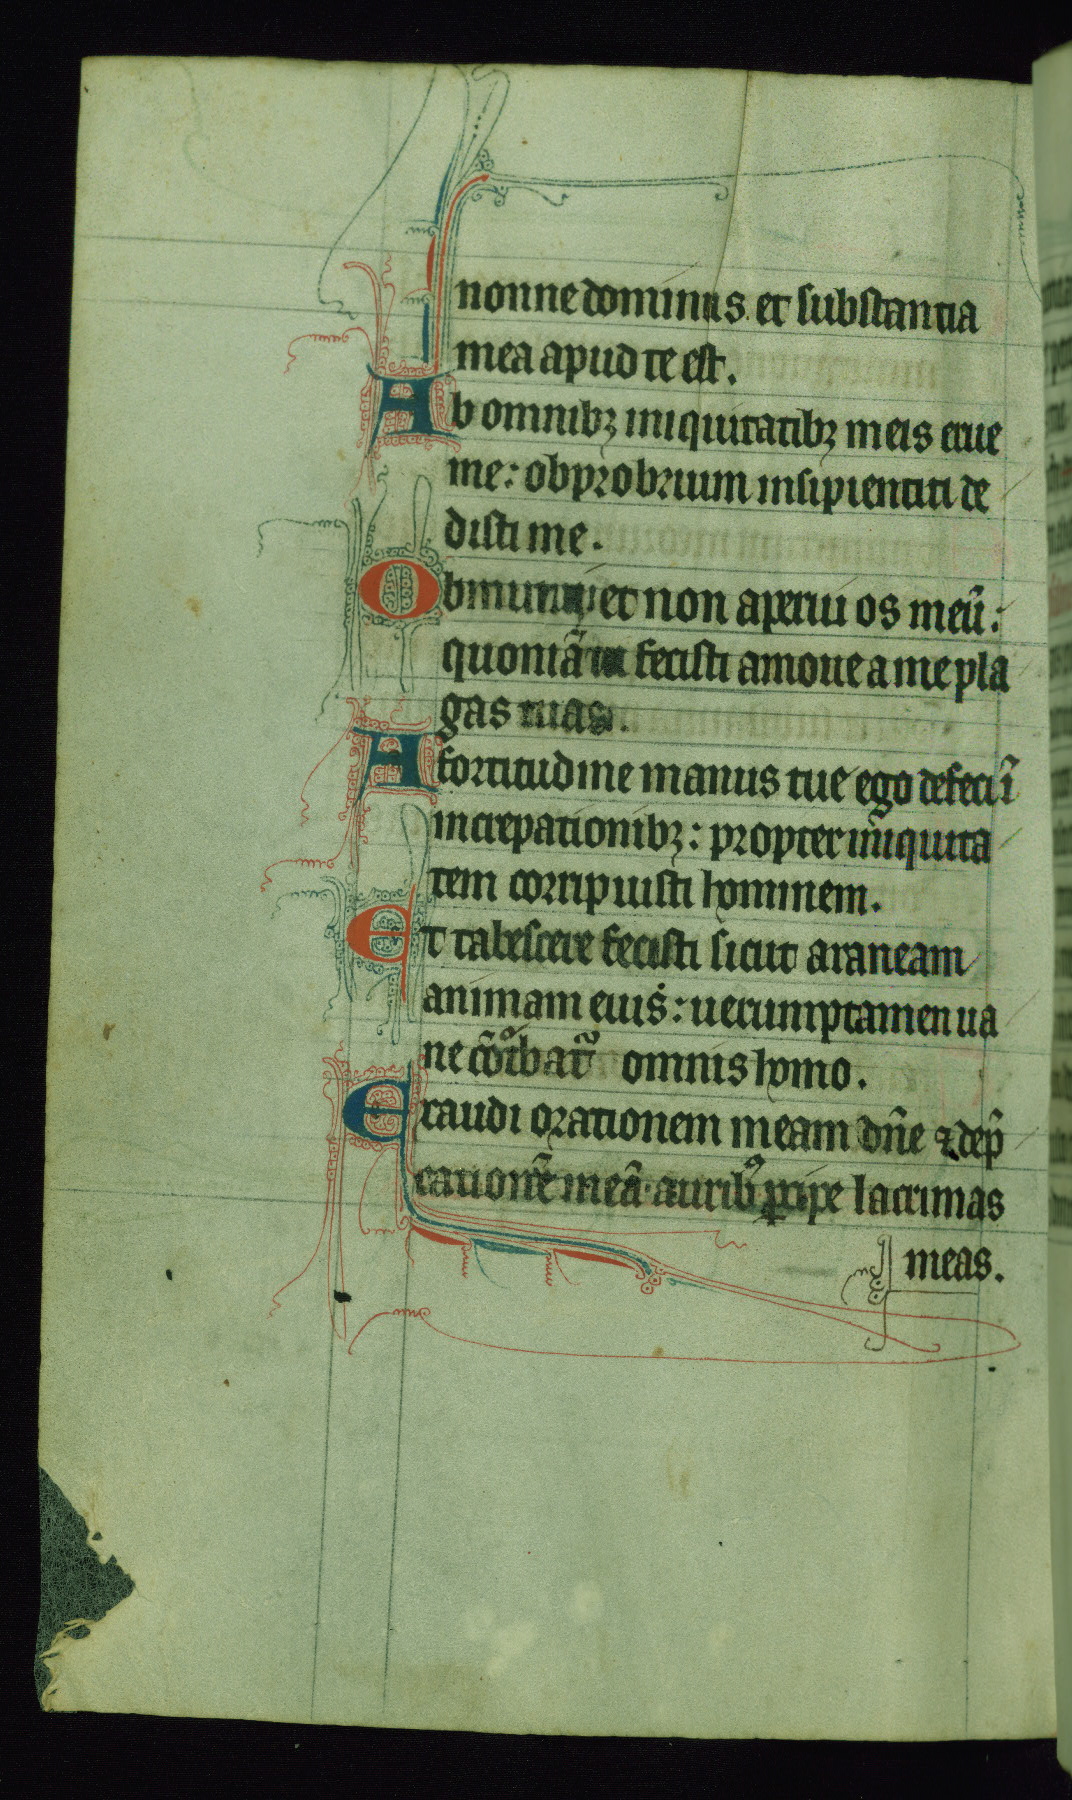 nonne dominus et substantia
mea apud te est.
Ab omnibꝫ iniquitatibꝫ meis erue
me: obprobrium insipienti de
disti me.
Obmutui et non aperui os meū:
quoniā tu fecisti amoue a me pla
gas tuas.
A fortitudine manus tue ego defeci ī
increpationibꝫ: propter iniquita
tem corripuisti hominem.
Et tabescere fecisti sicut araneam
animam eius: uerumptamen ua
ne cōturbatur omnis homo.
Exaudi orationem meam dn̄e ⁊ dep̄
cationē meā auribꝰ ꝑcipe lacrimas
meas.